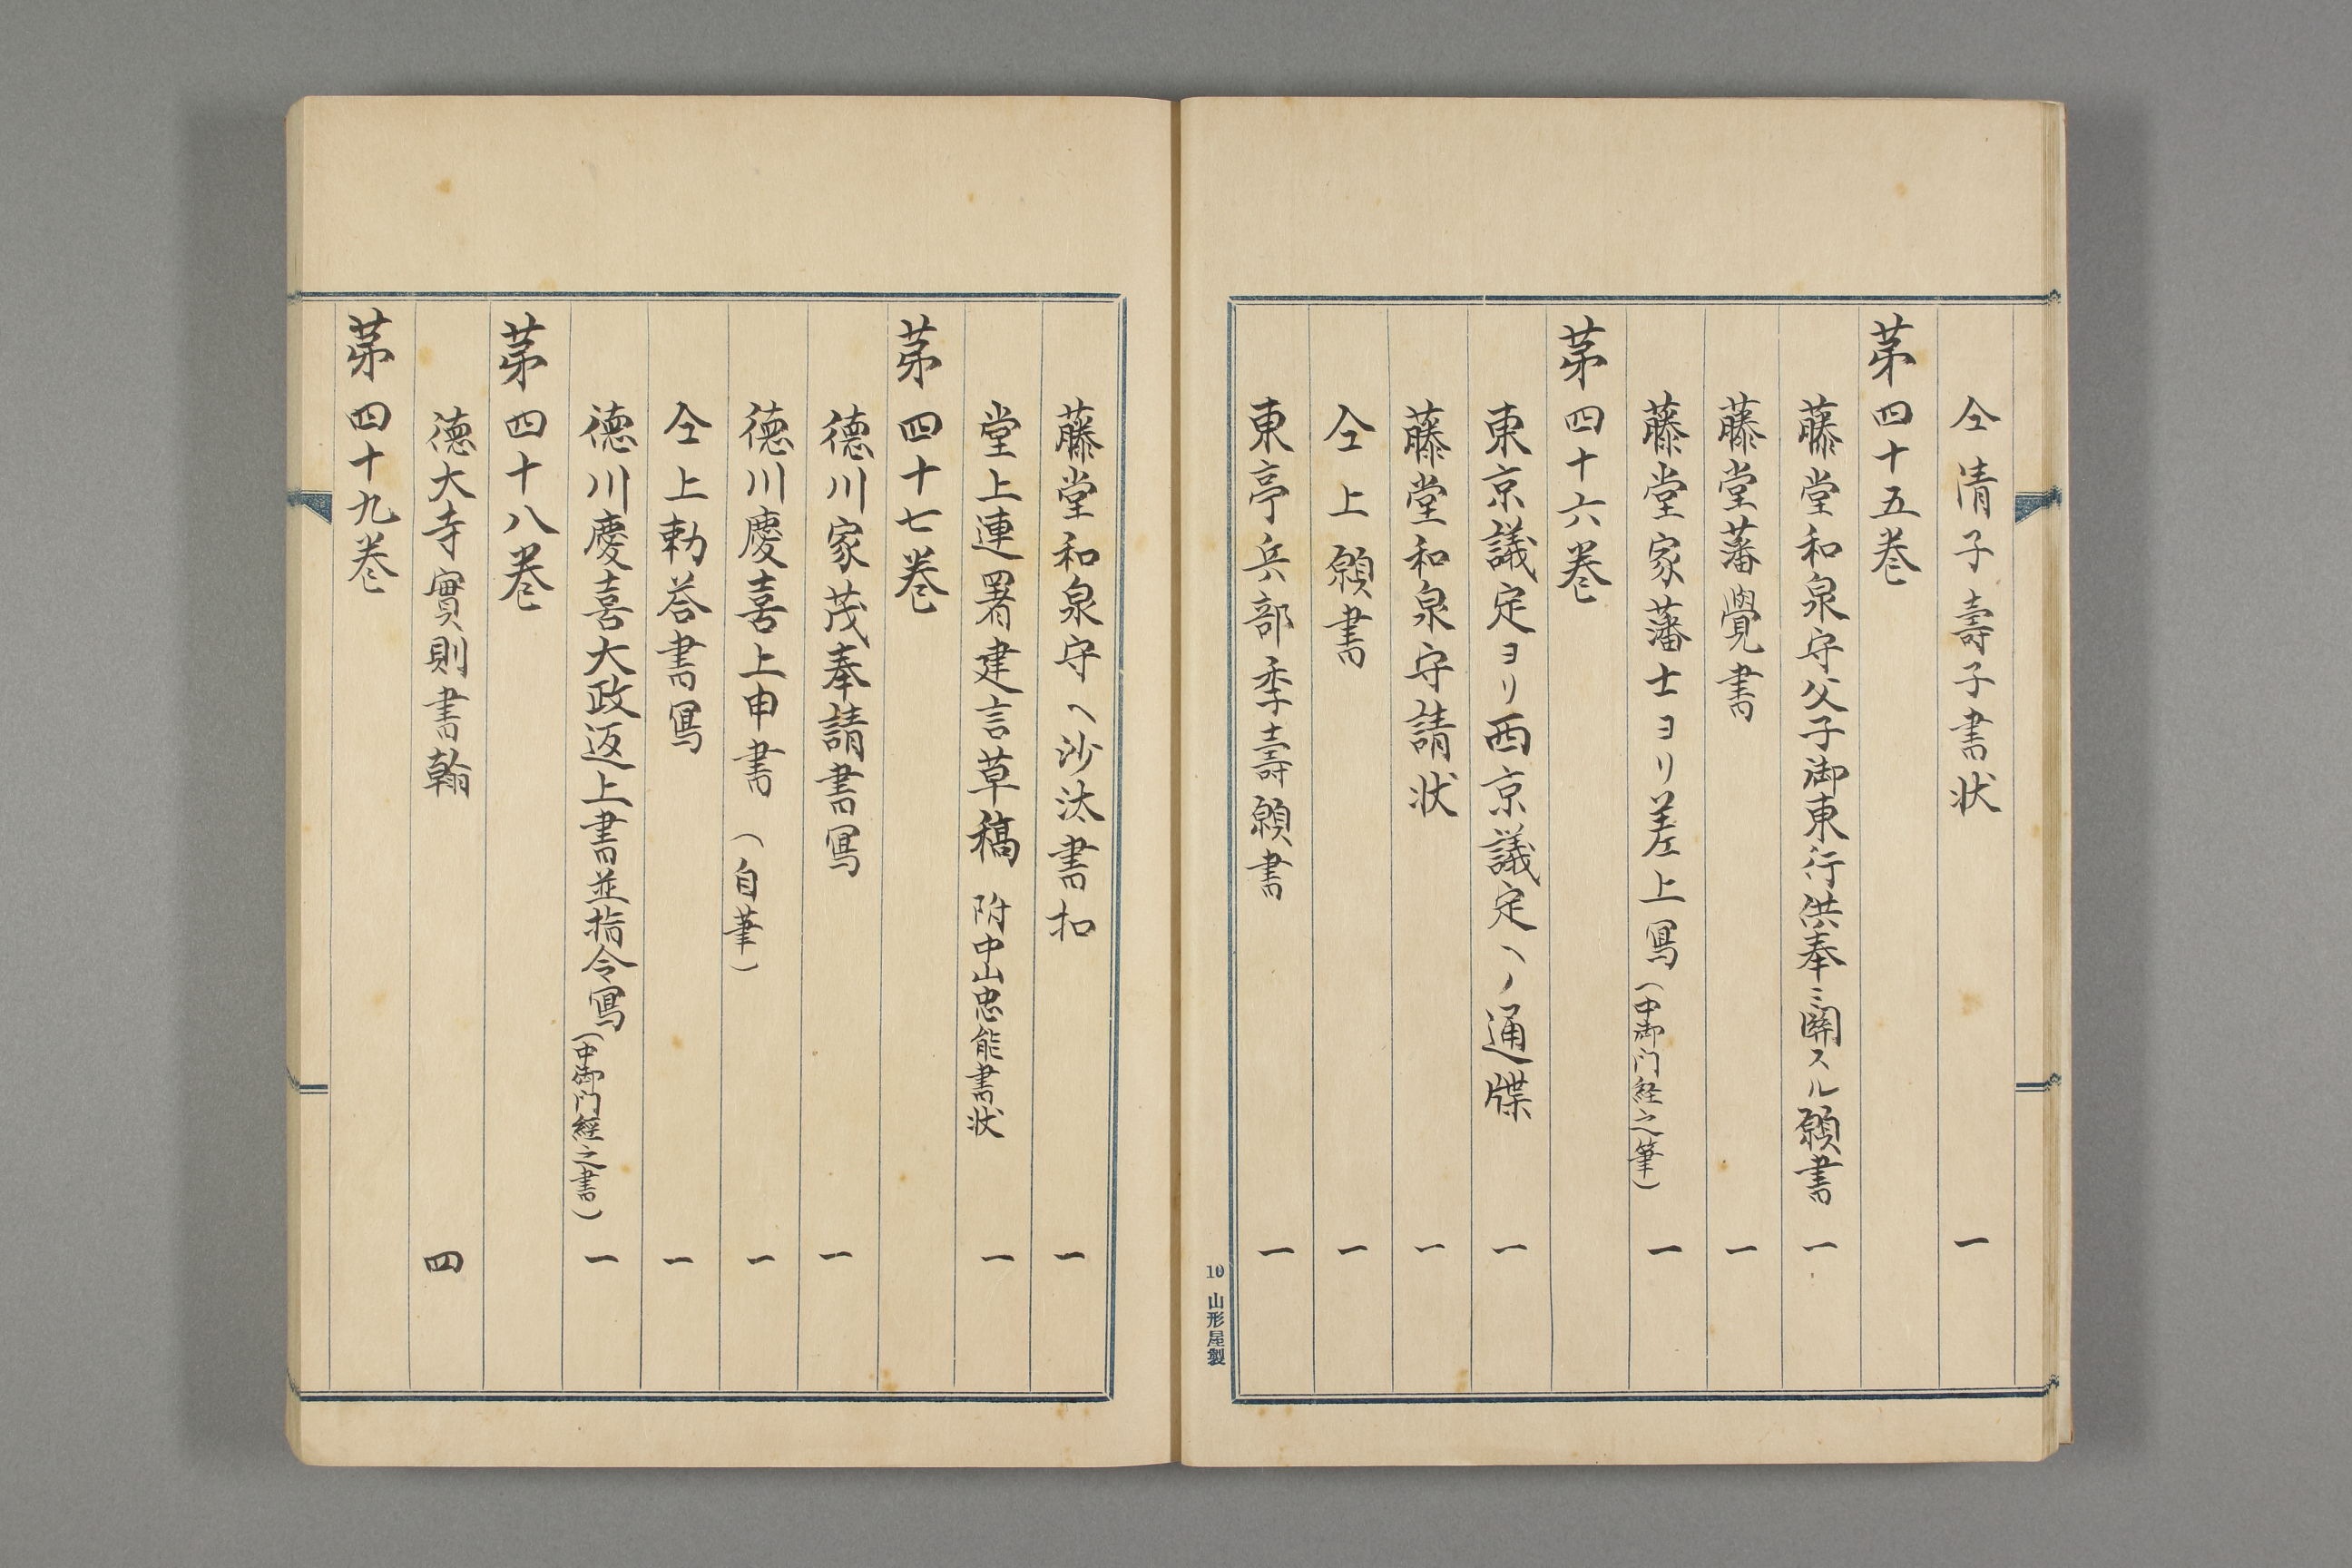 仝清子壽子書状 一
第四十五巻
藤堂和泉守父子御東行供奉ニ関スル願書 一
藤堂藩覺書 一
藤堂家藩士ヨリ差上寫(中御門経之筆) 一
第四十六巻
東京議定ヨリ西京議定ヘノ通牒 一
藤堂和泉守請状 一
仝上願書 一
東亭兵部季壽願書 一
10 山形屋製
藤堂和泉守ヘ沙汰書扣 一
堂上連署建言草稿 附中山忠能書状 一
第四十七巻
徳川家茂奉請書寫 一
徳川慶喜上申書(自筆) 一
仝上勅答書寫 一
徳川慶喜大政返上書並指令寫(中御門經之書) 一
第四十八巻
徳大寺實則書翰 四
第四十九巻